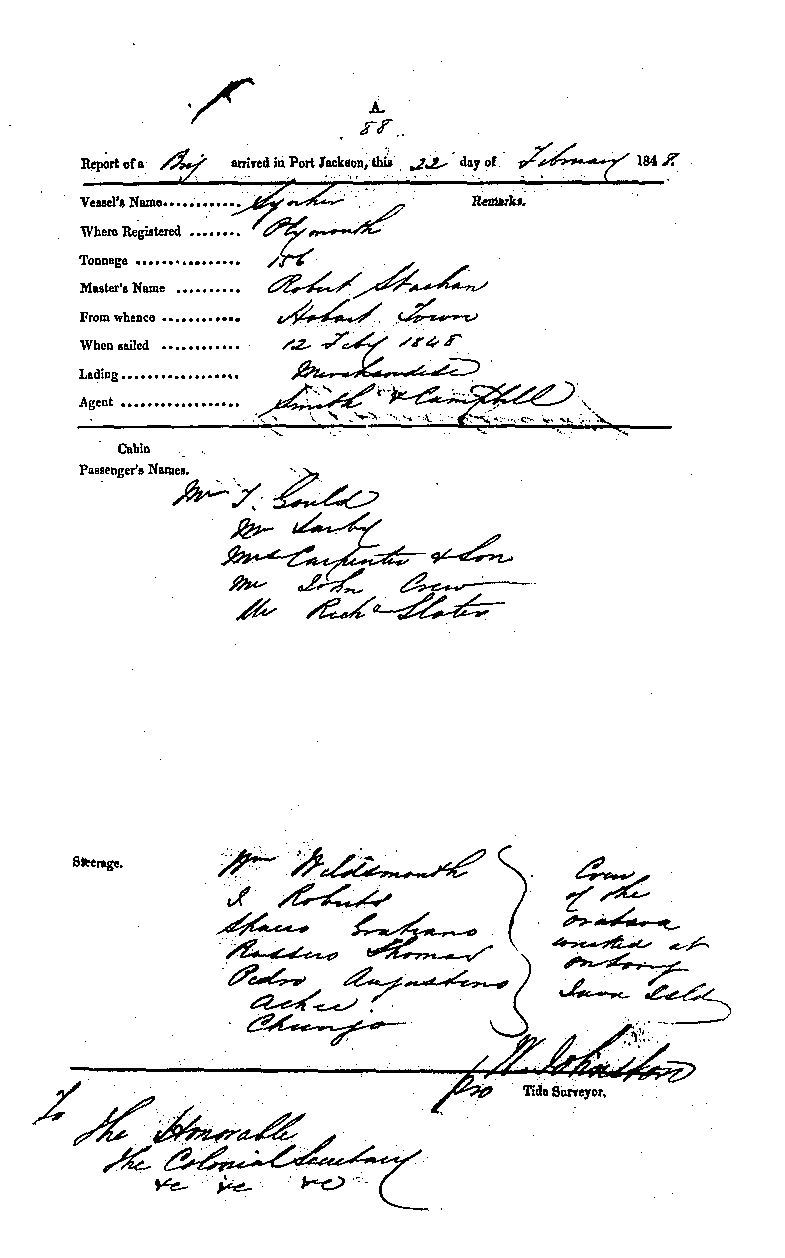 A.
88
Report of a Brig arrived in Port Jackson, this 22 day of February 1848.
Vessel's Name............
Remarks.
Where Registered ........ Plymouth
Tonnage ................ 156
Master's Name .......... Robert Stachan
From whence ............ Hobart Town
When sailed ............ 12 Feby 1848
Lading.................. Merchandise
Agent .................. Smith & Campbell
Cabin
Passenger's Names.
Mr T. Gould
Mr
Mrs Carpenter & Son
Mr John Crew
Mr Richd Slater
Steerage.
Wm Wildsmouth
I Roberts
Gratiano
Thomas
Pedro Augustino
Achee
Chungo
Crew
of the
wrecked at
Isld
W. Johnston
pro Tide Surveyor.
To
The Honorable
The Colonial Secretary
&c &c &c